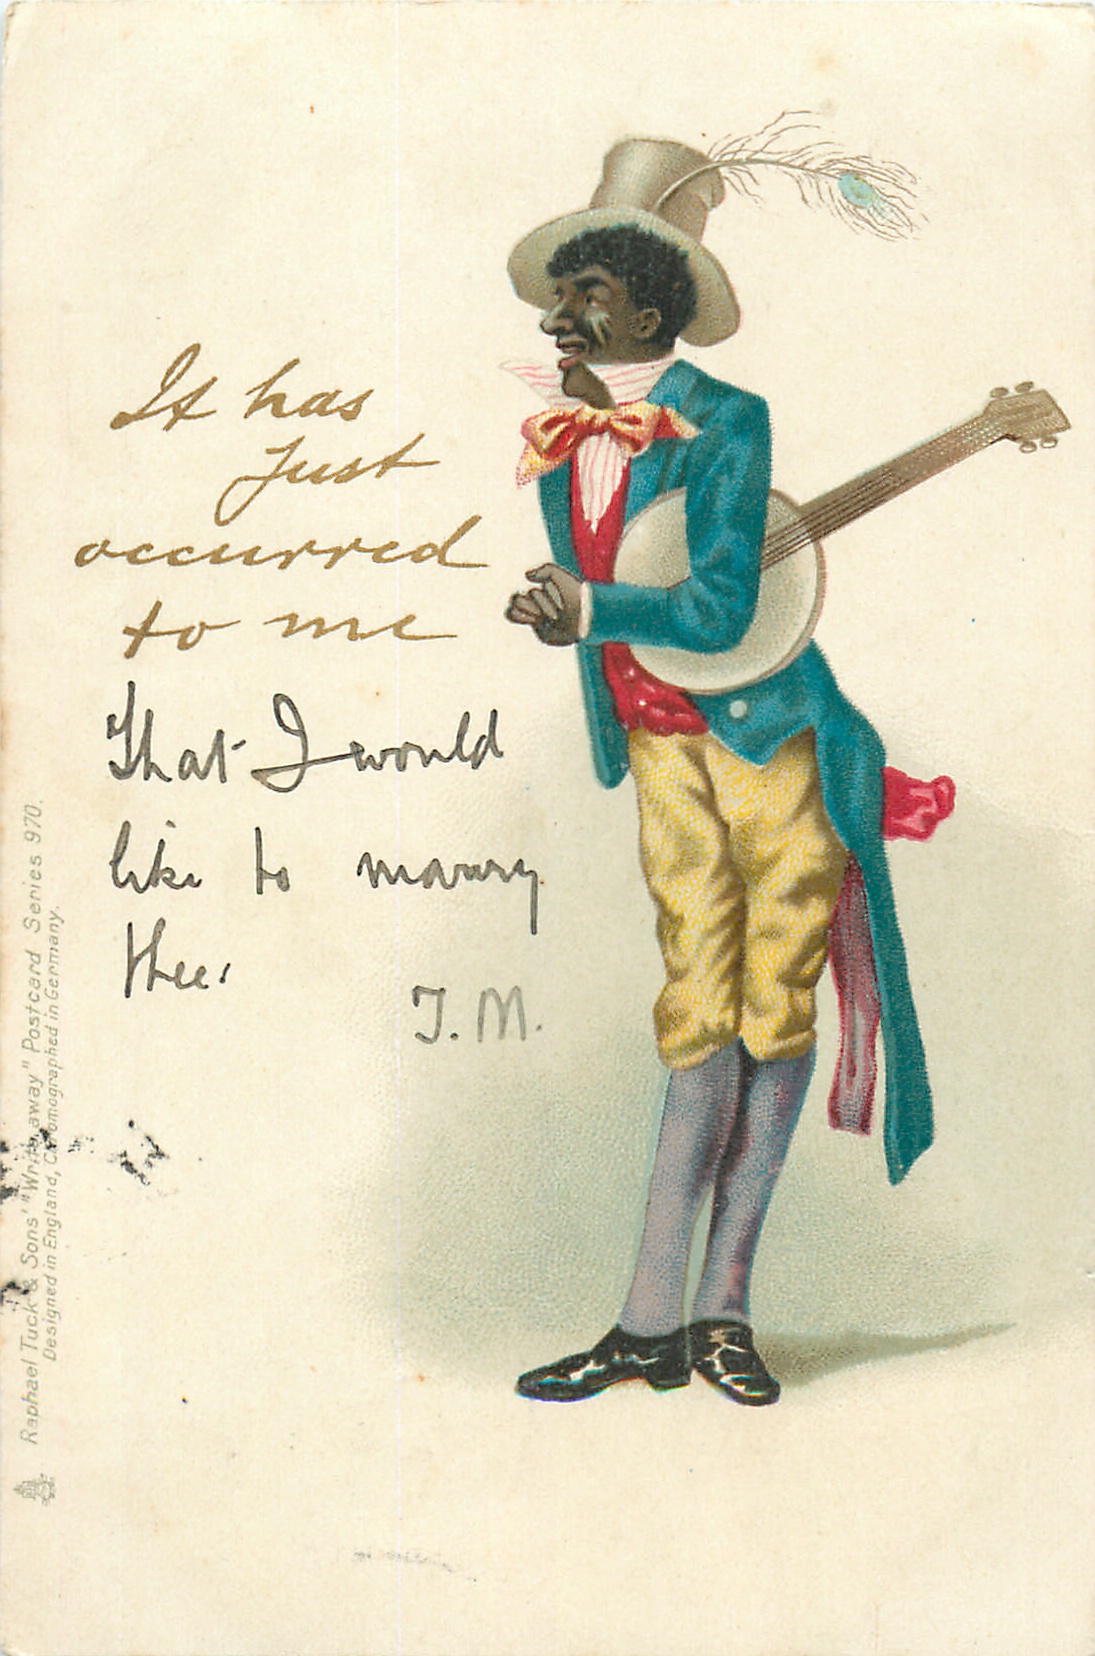 It has
Just
occurred
to me
That I would
like to marry
thee.
J. M.
Raphael Tuck & Sons' "Write away" Postcard Series 970.
Designed in England, Chromographed in Germany.